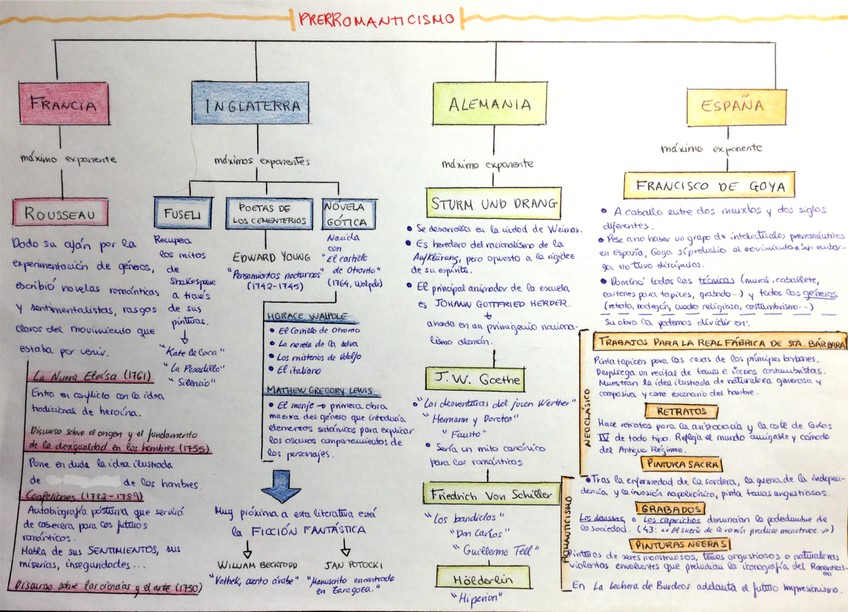 PRERROMANTICISMO
FRANCIA
máximo exponente
ROUSSEAU
Dado su afán por la
experimentación de géneros,
escribió novelas románticas
y sentimentalistas, rasgos
claros del movimiento que
estaba por venir.
La Nueva Eloísa (1761)
Entra en conflicto con la idea
tradicional de heroína.
Discurso sobre el origen y el fundamento
de la desigualdad en los hombres (1755)
Pone en duda la idea ilustrada
de
de los hombres.
Confesiones (1782-1789)
Autobiografía póstuma que servirá
de cabecera para los futuros
románticos.
Habla de sus SENTIMIENTOS, sus
miserias, inseguridades...
Discurso sobre las ciencias y el arte (1750)
INGLATERRA
máximos exponentes
FUSELI
Recupera
los mitos
de
Shakespeare
a través
de sus
pinturas.
"Kate la Loca"
"La Pesadilla"
"Silencio"
POETAS DE
LOS CEMENTERIOS
EDWARD YOUNG
"Pensamientos nocturnos"
(1742-1745)
NOVELA
GÓTICA
Nacida
con
"El castillo
de Otranto"
(1764, Walpole)
HORACE WALPOLE
El Castillo de Otranto
La novela de la selva
Los misterios de Udolfo
El italiano
MATHEW GREGORY LEWIS
El monje → primera obra
maestra del género que introducía
elementos satánicos para explicar
los oscuros comportamientos de
los personajes.
Muy próxima a esta literatura está
la FICCIÓN FANTÁSTICA
WILLIAM BECKFORD
"Vathek, cuento árabe"
JAN POTOCKI
"Manuscrito encontrado
en Zaragoza."
ALEMANIA
máximo exponente
STURM UND DRANG
Se desarrolla en la ciudad de Weimar.
Es heredero del racionalismo de la
Aufklärung, pero opuesto a la rigidez
de su espíritu.
El principal animador de la escuela
es JOHANN GOTTFRIED HERDER.
ahonda en un primigenio naciona-
lismo alemán.
J.W. Goethe
"Las desventuras del joven Werther"
"Hermann y Dorotea"
"Fausto"
Sería un mito canónico
para los románticos
Friedrich Von Schiller
"Los bandidos"
"Don Carlos"
"Guillermo Tell"
Hölderlin
"Hiperión"
ESPAÑA
máximo exponente
FRANCISCO DE GOYA
A caballo entre dos mundos y dos siglos
diferentes.
Pese a no haber un grupo de intelectuales prerrománticos
en España, Goya sí preludió el movimiento, sin embar-
go, no tuvo discípulos.
Dominó todas las técnicas (mural, caballete,
cartones para tapices, grabado...) y todos los géneros
(retrato, bodegón, cuadro religioso, costumbrismo...)
Su obra la podemos dividir en:
NEOCLÁSICO
TRABAJOS PARA LA REAL FÁBRICA DE STA. BÁRBARA
Pinta tapices para las casas de los príncipes borbones.
Despliega un recital de temas y escenas costumbristas.
Muestran la idea ilustrada de naturaleza generosa y
compasiva y como escenario del hombre.
RETRATOS
Hace retratos para la aristocracia y la corte de Carlos
IV de todo tipo. Refleja el mundo amigable y cómodo
del Antiguo Régimen.
PINTURA SACRA
ROMANTICISMO
Tras la enfermedad de la sordera, la guerra de la indepen-
dencia y la invasión napoleónica, pinta temas angustiosos.
GRABADOS
Los desastres o Los caprichos denuncian la podredumbre de
la sociedad. (43: «El sueño de la razón produce monstruos»)
PINTURAS NEGRAS
Pinturas de seres monstruosos, temas angustiosos o naturalezas
violentas envolventes que preludian la iconografía del Romanticis-
mo
En La Lechera de Burdeos adelanta el futuro Impresionismo.